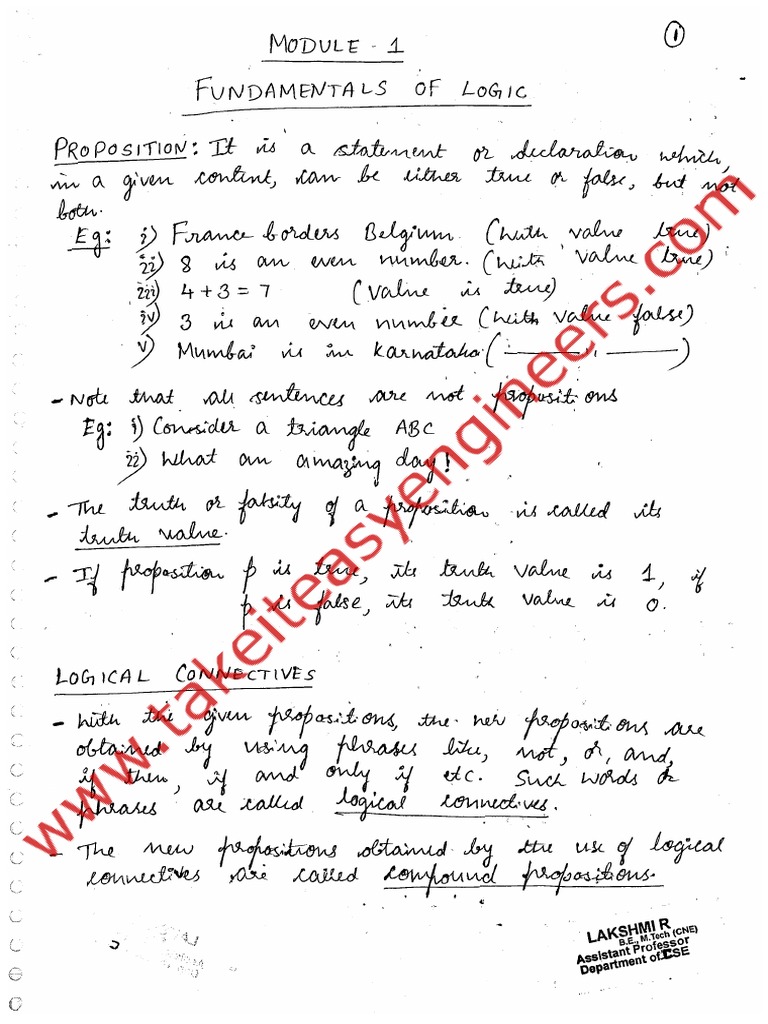 1
MODULE - 1
FUNDAMENTALS OF LOGIC
PROPOSITION: It is a statement or declaration which,
in a given content, can be either true or false, but not
both.
Eg: i) France borders Belgium. (With value true)
ii) 8 is an even number. (With value true)
iii) 4 + 3 = 7 (Value is true)
iv) 3 is an even number (With value false)
v) Mumbai is in Karnataka. ( —— " —— )
- Note that all sentences are not propositions
Eg: i) Consider a triangle ABC
ii) What an amazing day!
- The truth or falsity of a proposition is called its
truth value.
- If proposition p is true, its truth value is 1, if
p is false, its truth value is 0.
LOGICAL CONNECTIVES
- With the given propositions, the new propositions are
obtained by using phrases like, not, or, and,
if then, if and only if etc. Such words or
phrases are called logical connectives.
- The new propositions obtained by the use of logical
connectives are called compound propositions.
www.takeiteasyengineers.com
LAKSHMI R
B.E., M.Tech (CNE)
Assistant Professor
Department of CSE